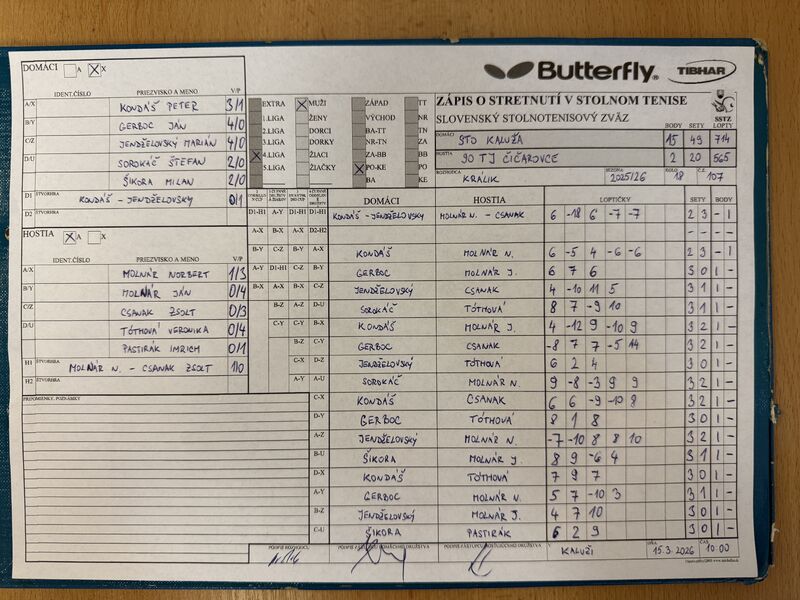 DOMÁCI A X
IDENT.ČÍSLO PRIEZVISKO A MENO V/P
A/X KONDÁŠ PETER 3/1
B/Y GERBOC JÁN 4/0
C/Z JENDŽELOVSKÝ MARIÁN 4/0
D/U SOROKÁČ ŠTEFAN 2/0
ŠIKORA MILAN 2/0
D1 ŠTVORHRA KONDÁŠ - JENDŽELOVSKÝ 0/1
D2 ŠTVORHRA
HOSTIA A X
IDENT.ČÍSLO PRIEZVISKO A MENO V/P
A/X MOLNÁR NORBERT 1/3
B/Y MOLNÁR JÁN 0/4
C/Z CSANAK ZSOLT 0/3
D/U TÓTHOVÁ VERONIKA 0/4
PASTIRÁK IMRICH 0/1
H1 ŠTVORHRA MOLNÁR N. - CSANAK ZSOLT 1/0
H2 ŠTVORHRA
PRIPOMIENKY, POZNÁMKY
Butterfly TIBHAR
EXTRA MUŽI ZÁPAD TT
1.LIGA ŽENY VÝCHOD NR
2.LIGA DORCI BA-TT TN
3.LIGA DORKY NR-TN ZA
4.LIGA ŽIACI ZA-BB BB
5.LIGA ŽIAČKY PO-KE PO
BA KE
ZÁPIS O STRETNUTÍ V STOLNOM TENISE
SLOVENSKÝ STOLNOTENISOVÝ ZVÄZ SSTZ
BODY SETY LOPTY
DOMÁCI STO KALUŽA 15 49 714
HOSTIA 90 TJ ČIČAROVCE 2 20 565
ROZHODCA KRÁLIK SEZÓNA 2025/26 KOLO 18 Č.Z. 107
DOMÁCI HOSTIA LOPTIČKY SETY BODY
D1-H1 A-Y D1-H1 D1-H1 KONDÁŠ - JENDŽELOVSKÝ MOLNÁR N. - CSANAK 6 -18 6 -7 -7 2 3 - 1
A-X B-X A-X D2-H2 - - - -
B-Y C-Z B-Y A-X KONDÁŠ MOLNÁR N. 6 -5 4 -6 -6 2 3 - 1
A-Y D1-H1 C-Z B-Y GERBOC MOLNÁR J. 6 7 6 3 0 1 -
B-X A-X B-X C-Z JENDŽELOVSKÝ CSANAK 4 -10 11 5 3 1 1 -
B-Z A-Z D-U SOROKÁČ TÓTHOVÁ 8 7 -9 10 3 1 1 -
C-Y C-Y B-X KONDÁŠ MOLNÁR J. 4 -12 9 -10 9 3 2 1 -
B-Z C-Y GERBOC CSANAK -8 7 7 -5 14 3 2 1 -
C-X D-Z JENDŽELOVSKÝ TÓTHOVÁ 6 2 4 3 0 1 -
A-Y A-U SOROKÁČ MOLNÁR N. 9 -8 -3 9 9 3 2 1 -
C-X KONDÁŠ CSANAK 6 6 -9 -10 8 3 2 1 -
D-Y GERBOC TÓTHOVÁ 8 1 8 3 0 1 -
A-Z JENDŽELOVSKÝ MOLNÁR N. -7 -10 8 8 10 3 2 1 -
B-U ŠIKORA MOLNÁR J. 8 9 -6 4 3 1 1 -
D-X KONDÁŠ TÓTHOVÁ 7 9 7 3 0 1 -
A-Y GERBOC MOLNÁR N. 5 7 -10 3 3 1 1 -
B-Z JENDŽELOVSKÝ MOLNÁR J. 4 7 10 3 0 1 -
C-U ŠIKORA PASTIRÁK 6 2 9 3 0 1 -
PODPIS ROZHODCU PODPIS ZÁSTUPCU DOMÁCEHO DRUŽSTVA PODPIS ZÁSTUPCU HOSŤUJÚCEHO DRUŽSTVA V KALUŽI DŇA 15.3.2026 ČAS 10:00